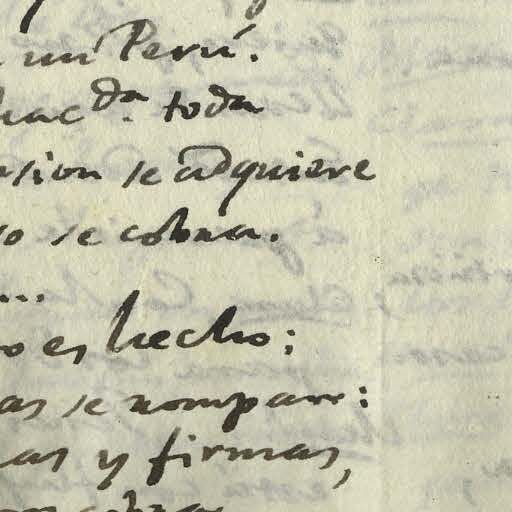 un Perú.
hacda. toda
asion se adquiere
so se cobra.
...
o es hecho;
as se rompan:
as y firmas,